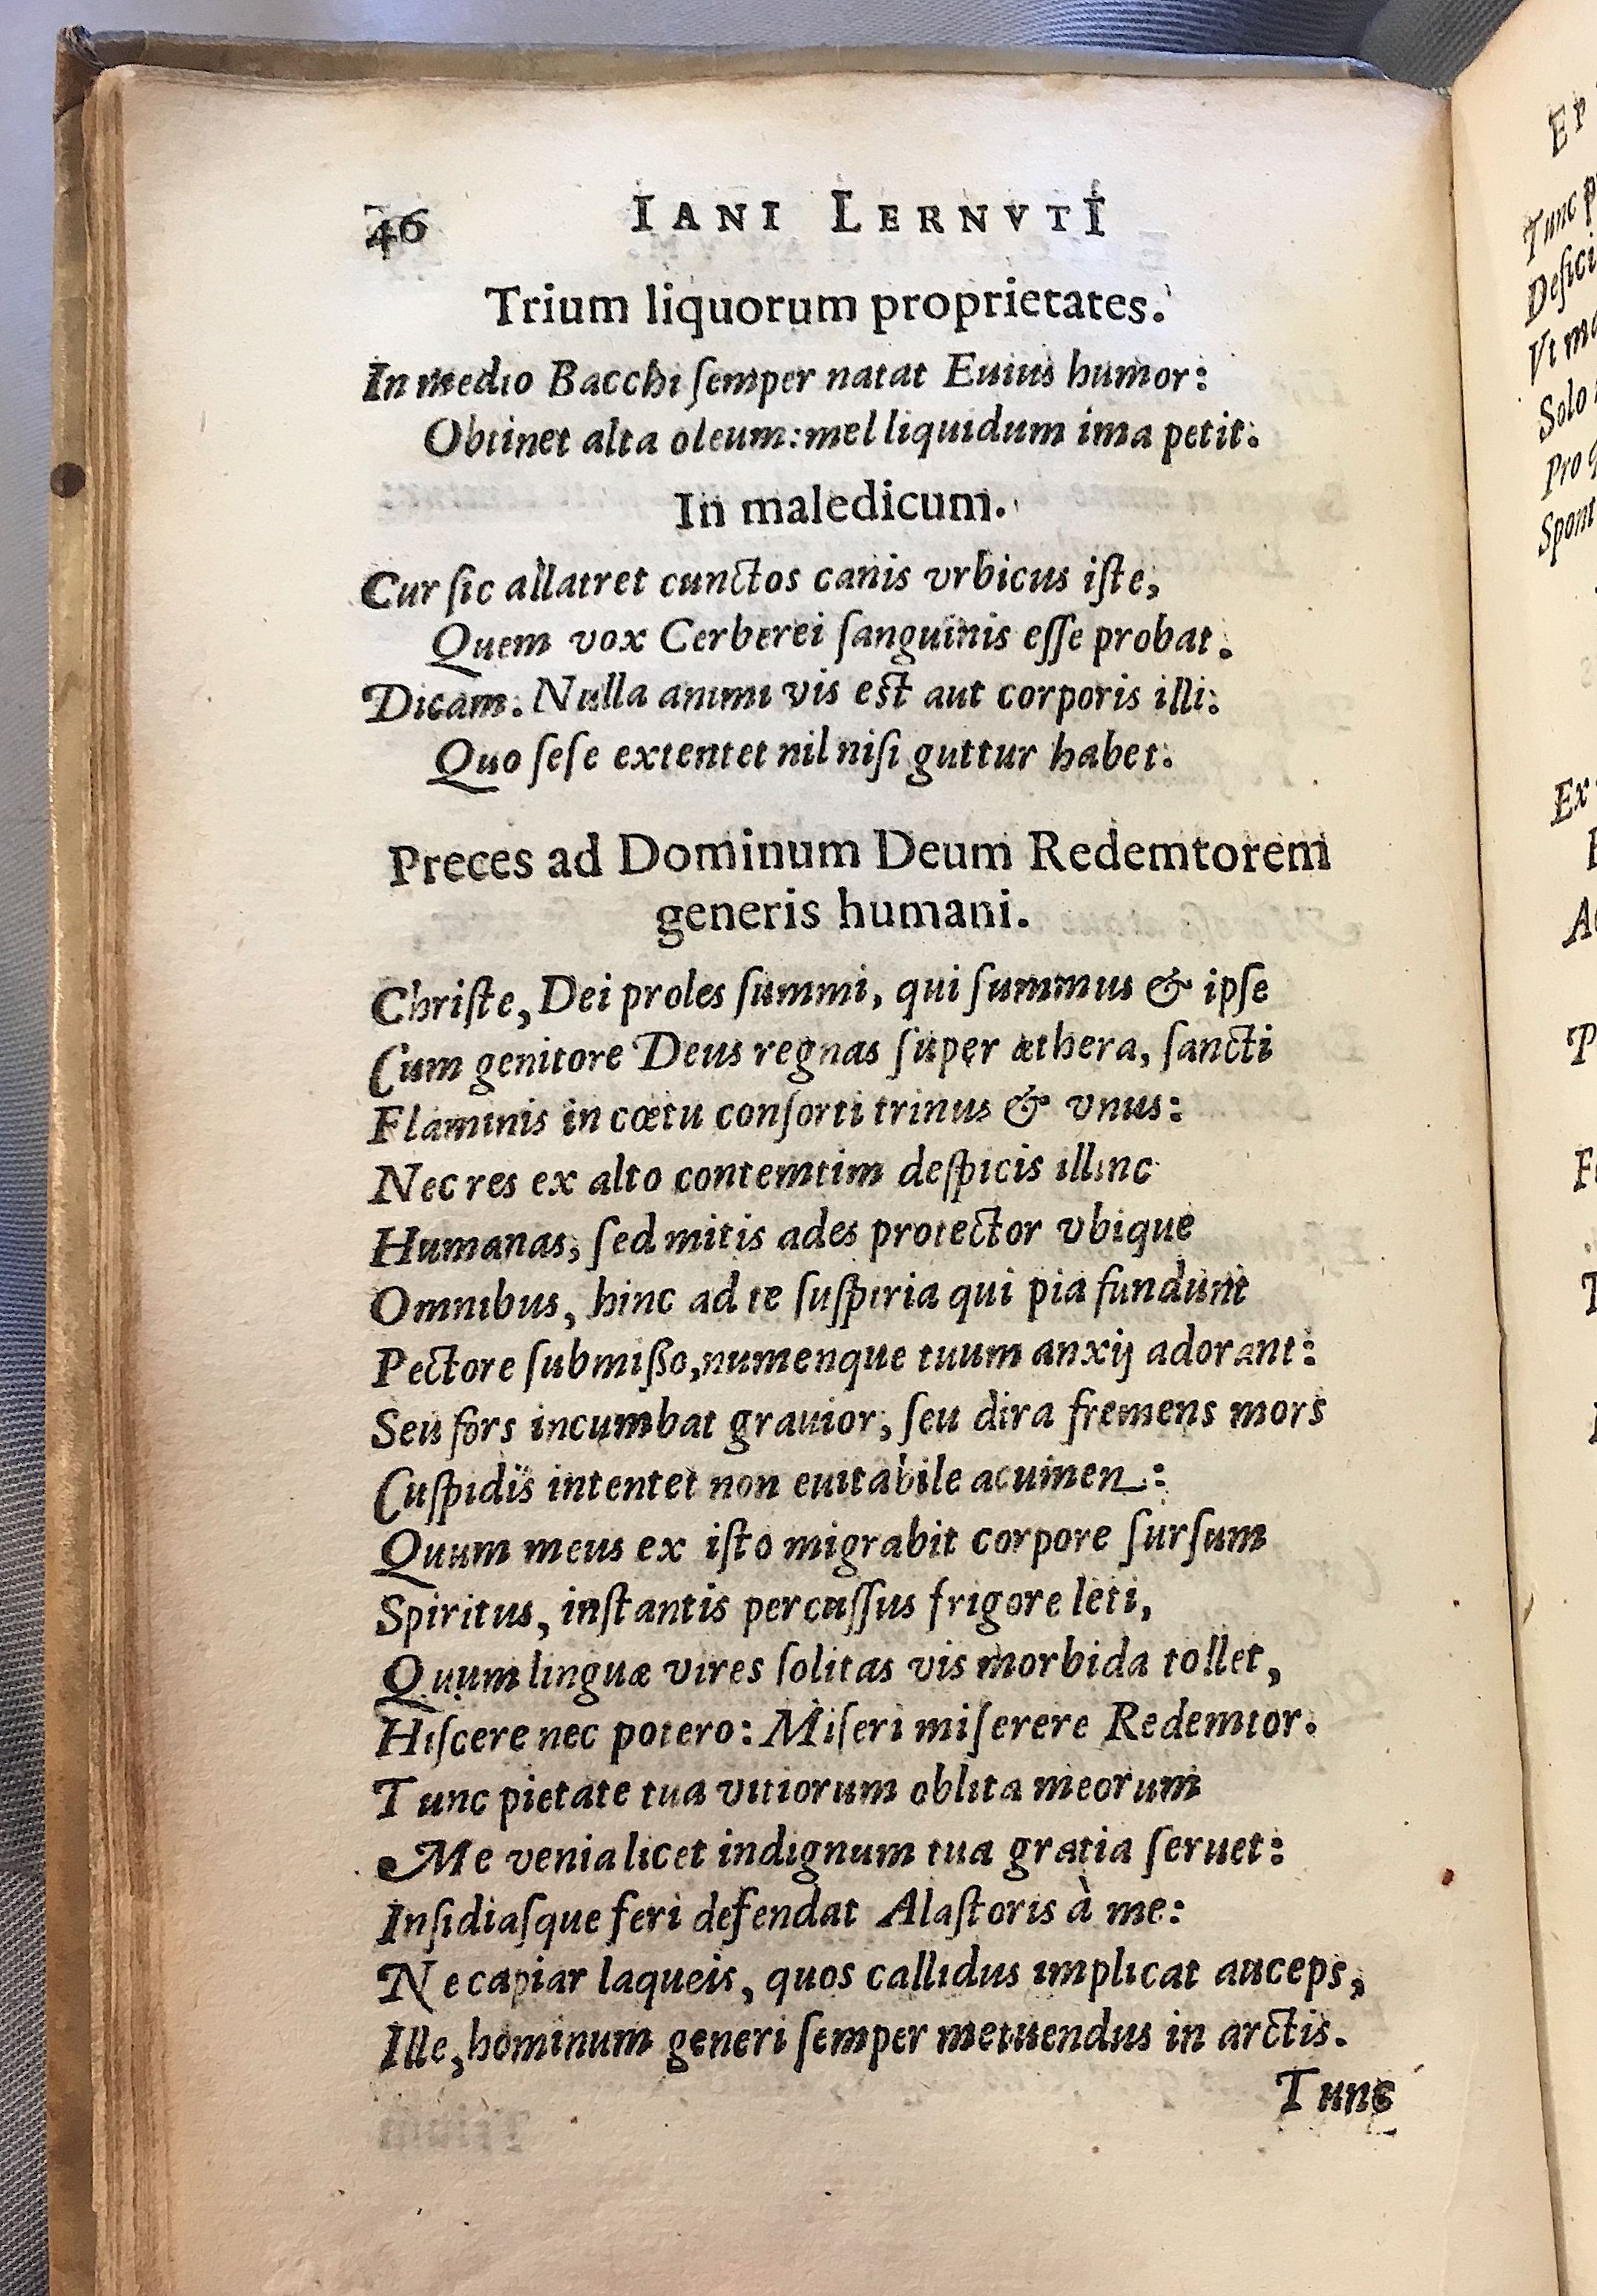 46 IANI LERNVTI
Trium liquorum proprietates.
In medio Bacchi ſemper natat Euius humor:
Obtinet alta oleum: mel liquidum ima petit.
In maledicum.
Cur ſic allatret cunctos canis vrbicus iſte,
Quem vox Cerberei ſanguinis eſſe probat.
Dicam: Nulla animi vis est aut corporis illi:
Quo ſeſe extentet nil niſi guttur habet.
Preces ad Dominum Deum Redemtorem
generis humani.
Chriſte, Dei proles ſummi, qui ſummus & ipſe
Cum genitore Deus regnas ſuper æthera, ſancti
Flaminis in cœtu conſorti trinus & vnus:
Nec res ex alto contemtim deſpicis illinc
Humanas, ſed mitis ades protector vbique
Omnibus, hinc ad te ſuſpiria qui pia fundunt
Pectore ſubmißo, numenque tuum anxij adorant:
Seu fors incumbat grauior, ſeu dira fremens mors
Cuſpidis intentet non euitabile acumen:
Quum meus ex iſto migrabit corpore ſurſum
Spiritus, inſtantis percuſſus frigore leti,
Quum linguæ vires ſolitas vis morbida tollet,
Hiſcere nec potero: Miſeri miſerere Redemtor.
Tunc pietate tua vitiorum oblita meorum
Me venia licet indignum tua gratia ſeruet:
Inſidiaſque feri defendat Alaſtoris à me:
Ne capiar laqueis, quos callidus implicat auceps,
Ille, hominum generi ſemper metuendus in arctis.
Tunc
Tunc
Vt
Solo
Ex